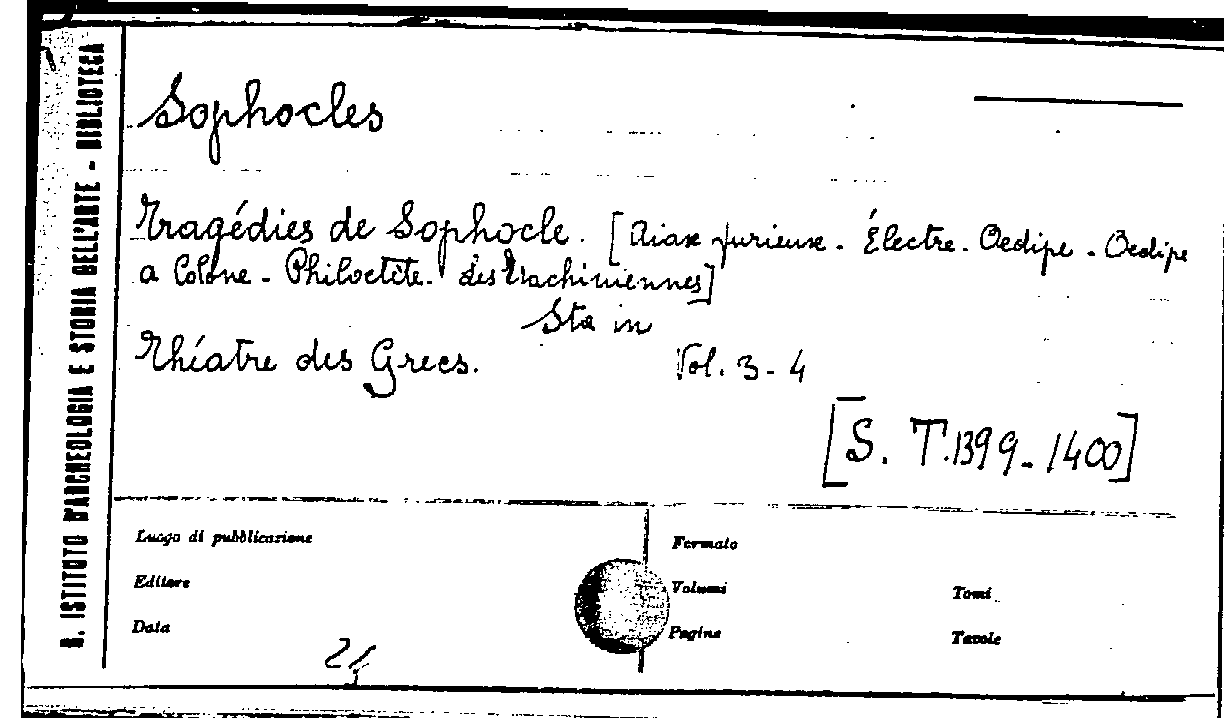 R. ISTITUTO D'ARCHEOLOGIA E STORIA DELL'ARTE - BIBLIOTECA
Sophocles
Tragédies de Sophocle. [Aiax furieux - Électre - Oedipe - Oedipe
a Colone - Philoctète. Les Trachiniennes]
Sta in
Théatre des Grecs. Vol. 3 - 4
[S. T. 1399 - 1400]
Luogo di pubblicazione
Formato
Editore
Volumi
Tomi
Data
Pagine
Tavole